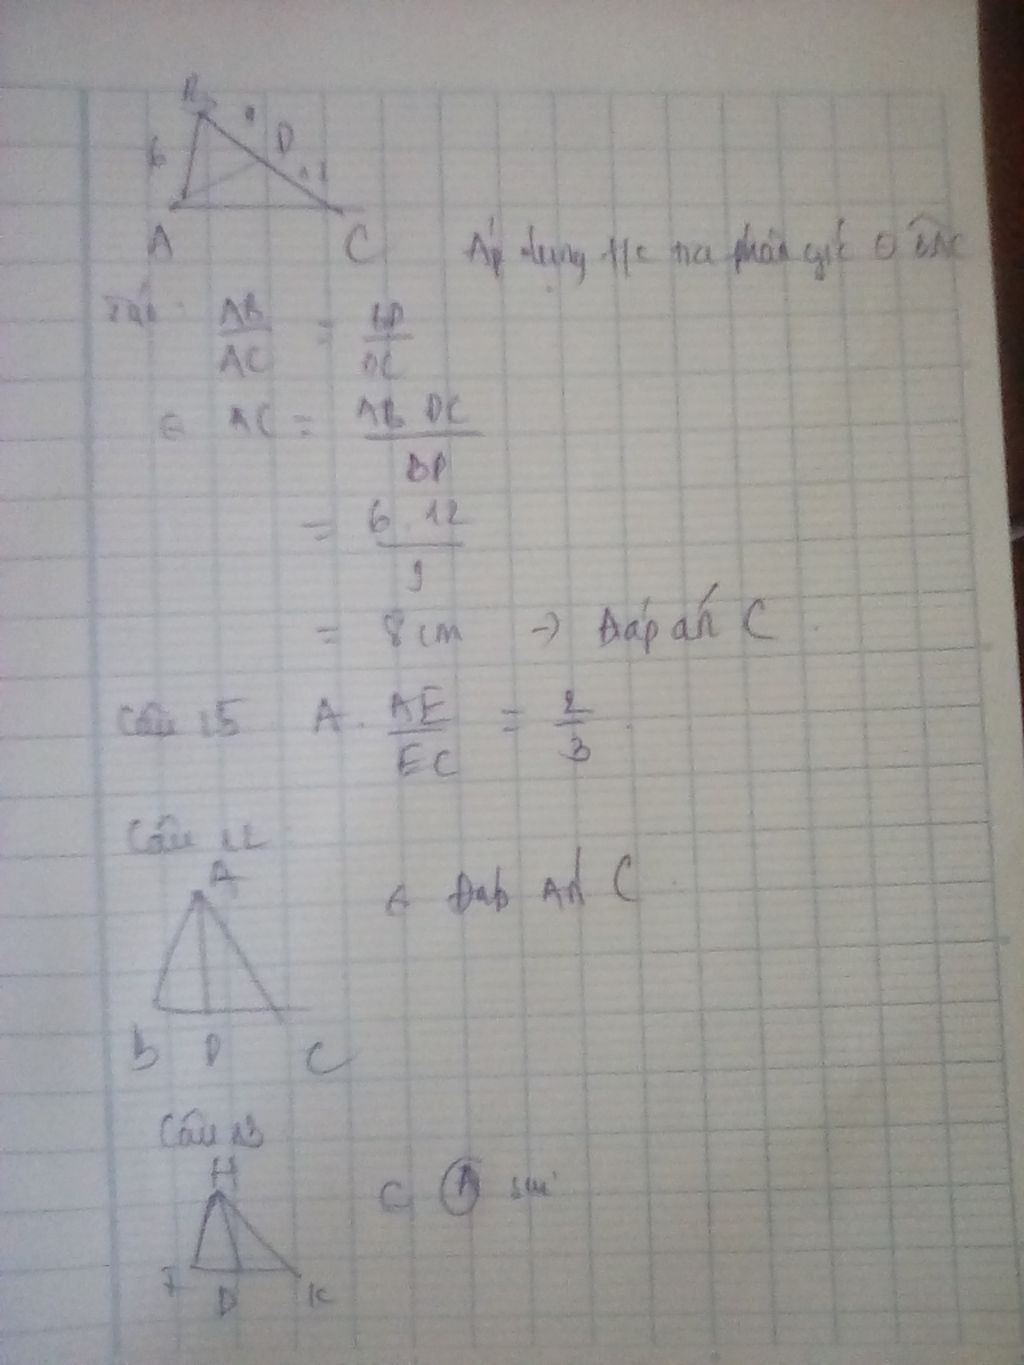 B
6 9 D 12
A C
Áp dụng t/c tia phân giác BAC
AB/AC = BD/DC
AC = AB DC/BD
= 6.12/9
= 8cm → Đáp án C.
Câu 15 A. AE/EC = 2/3.
Câu 12
A
Đáp Án C.
B D C
Câu 13
H
A sai
D K